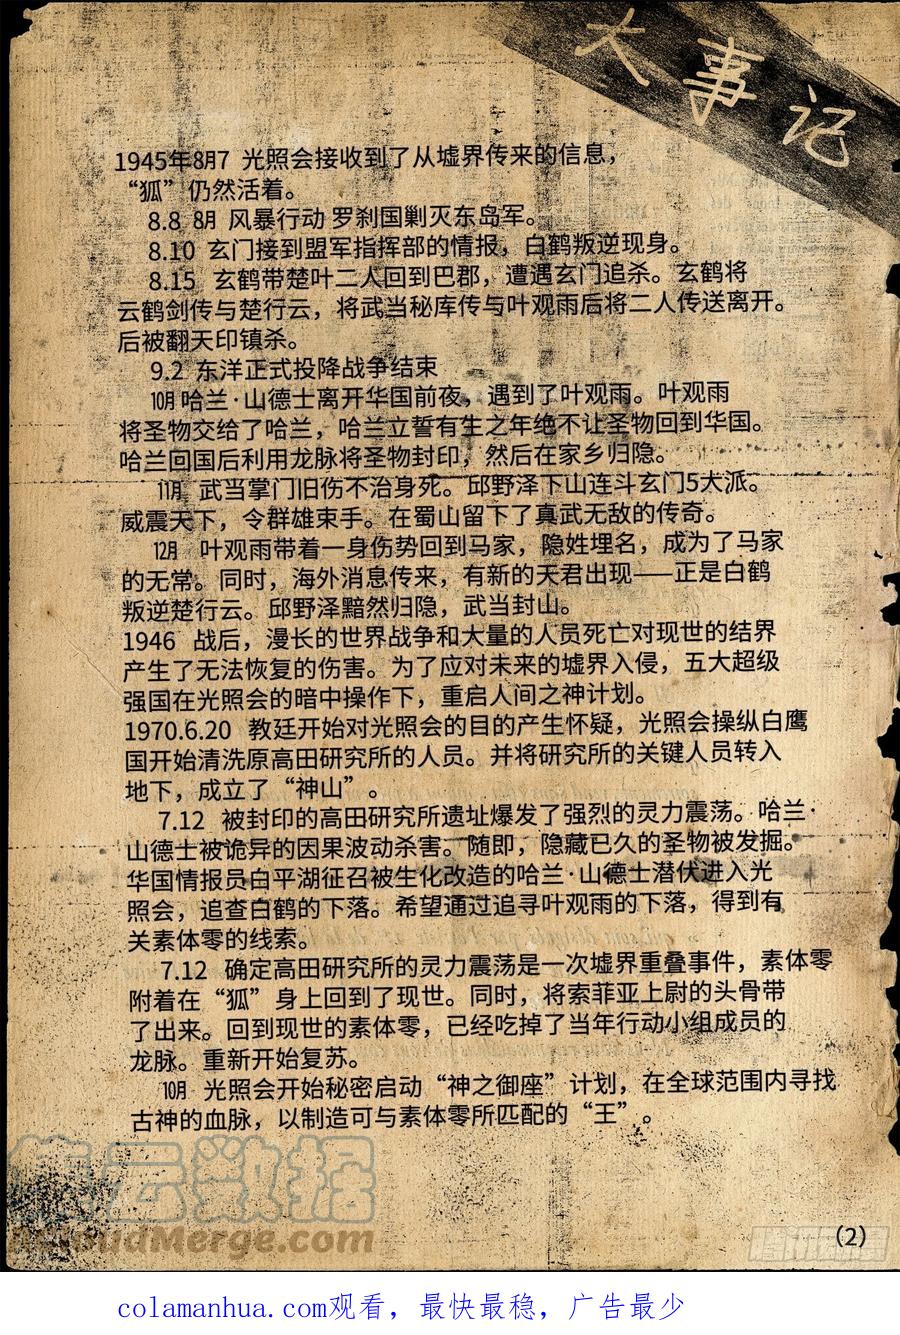 大事记
1945年8月7 光照会接收到了从墟界传来的信息，
“狐”仍然活着。
8.8 8月 风暴行动 罗刹国剿灭东岛军。
8.10 玄门接到盟军指挥部的情报，白鹤叛逆现身。
8.15 玄鹤带楚叶二人回到巴郡，遭遇玄门追杀。玄鹤将
云鹤剑传与楚行云，将武当秘库传与叶观雨后将二人传送离开。
后被翻天印镇杀。
9.2 东洋正式投降战争结束
10月 哈兰·山德士离开华国前夜，遇到了叶观雨。叶观雨
将圣物交给了哈兰，哈兰立誓有生之年绝不让圣物回到华国。
哈兰回国后利用龙脉将圣物封印，然后在家乡归隐。
11月 武当掌门旧伤不治身死。邱野泽下山连斗玄门5大派。
威震天下，令群雄束手。在蜀山留下了真武无敌的传奇。
12月 叶观雨带着一身伤势回到马家，隐姓埋名，成为了马家
的无常。同时，海外消息传来，有新的天君出现——正是白鹤
叛逆楚行云。邱野泽黯然归隐，武当封山。
1946 战后，漫长的世界战争和大量的人员死亡对现世的结界
产生了无法恢复的伤害。为了应对未来的墟界入侵，五大超级
强国在光照会的暗中操作下，重启人间之神计划。
1970.6.20 教廷开始对光照会的目的产生怀疑，光照会操纵白鹰
国开始清洗原高田研究所的人员。并将研究所的关键人员转入
地下，成立了“神山”。
7.12 被封印的高田研究所遗址爆发了强烈的灵力震荡。哈兰·
山德士被诡异的因果波动杀害。随即，隐藏已久的圣物被发掘。
华国情报员白平湖征召被生化改造的哈兰·山德士潜伏进入光
照会，追查白鹤的下落。希望通过追寻叶观雨的下落，得到有
关素体零的线索。
7.12 确定高田研究所的灵力震荡是一次墟界重叠事件，素体零
附着在“狐”身上回到了现世。同时，将索菲亚上尉的头骨带
了出来。回到现世的素体零，已经吃掉了当年行动小组成员的
龙脉。重新开始复苏。
10月 光照会开始秘密启动“神之御座”计划，在全球范围内寻找
古神的血脉，以制造可与素体零所匹配的“王”。
(2)
腾讯动漫
colamanhua.com观看，最快最稳，广告最少